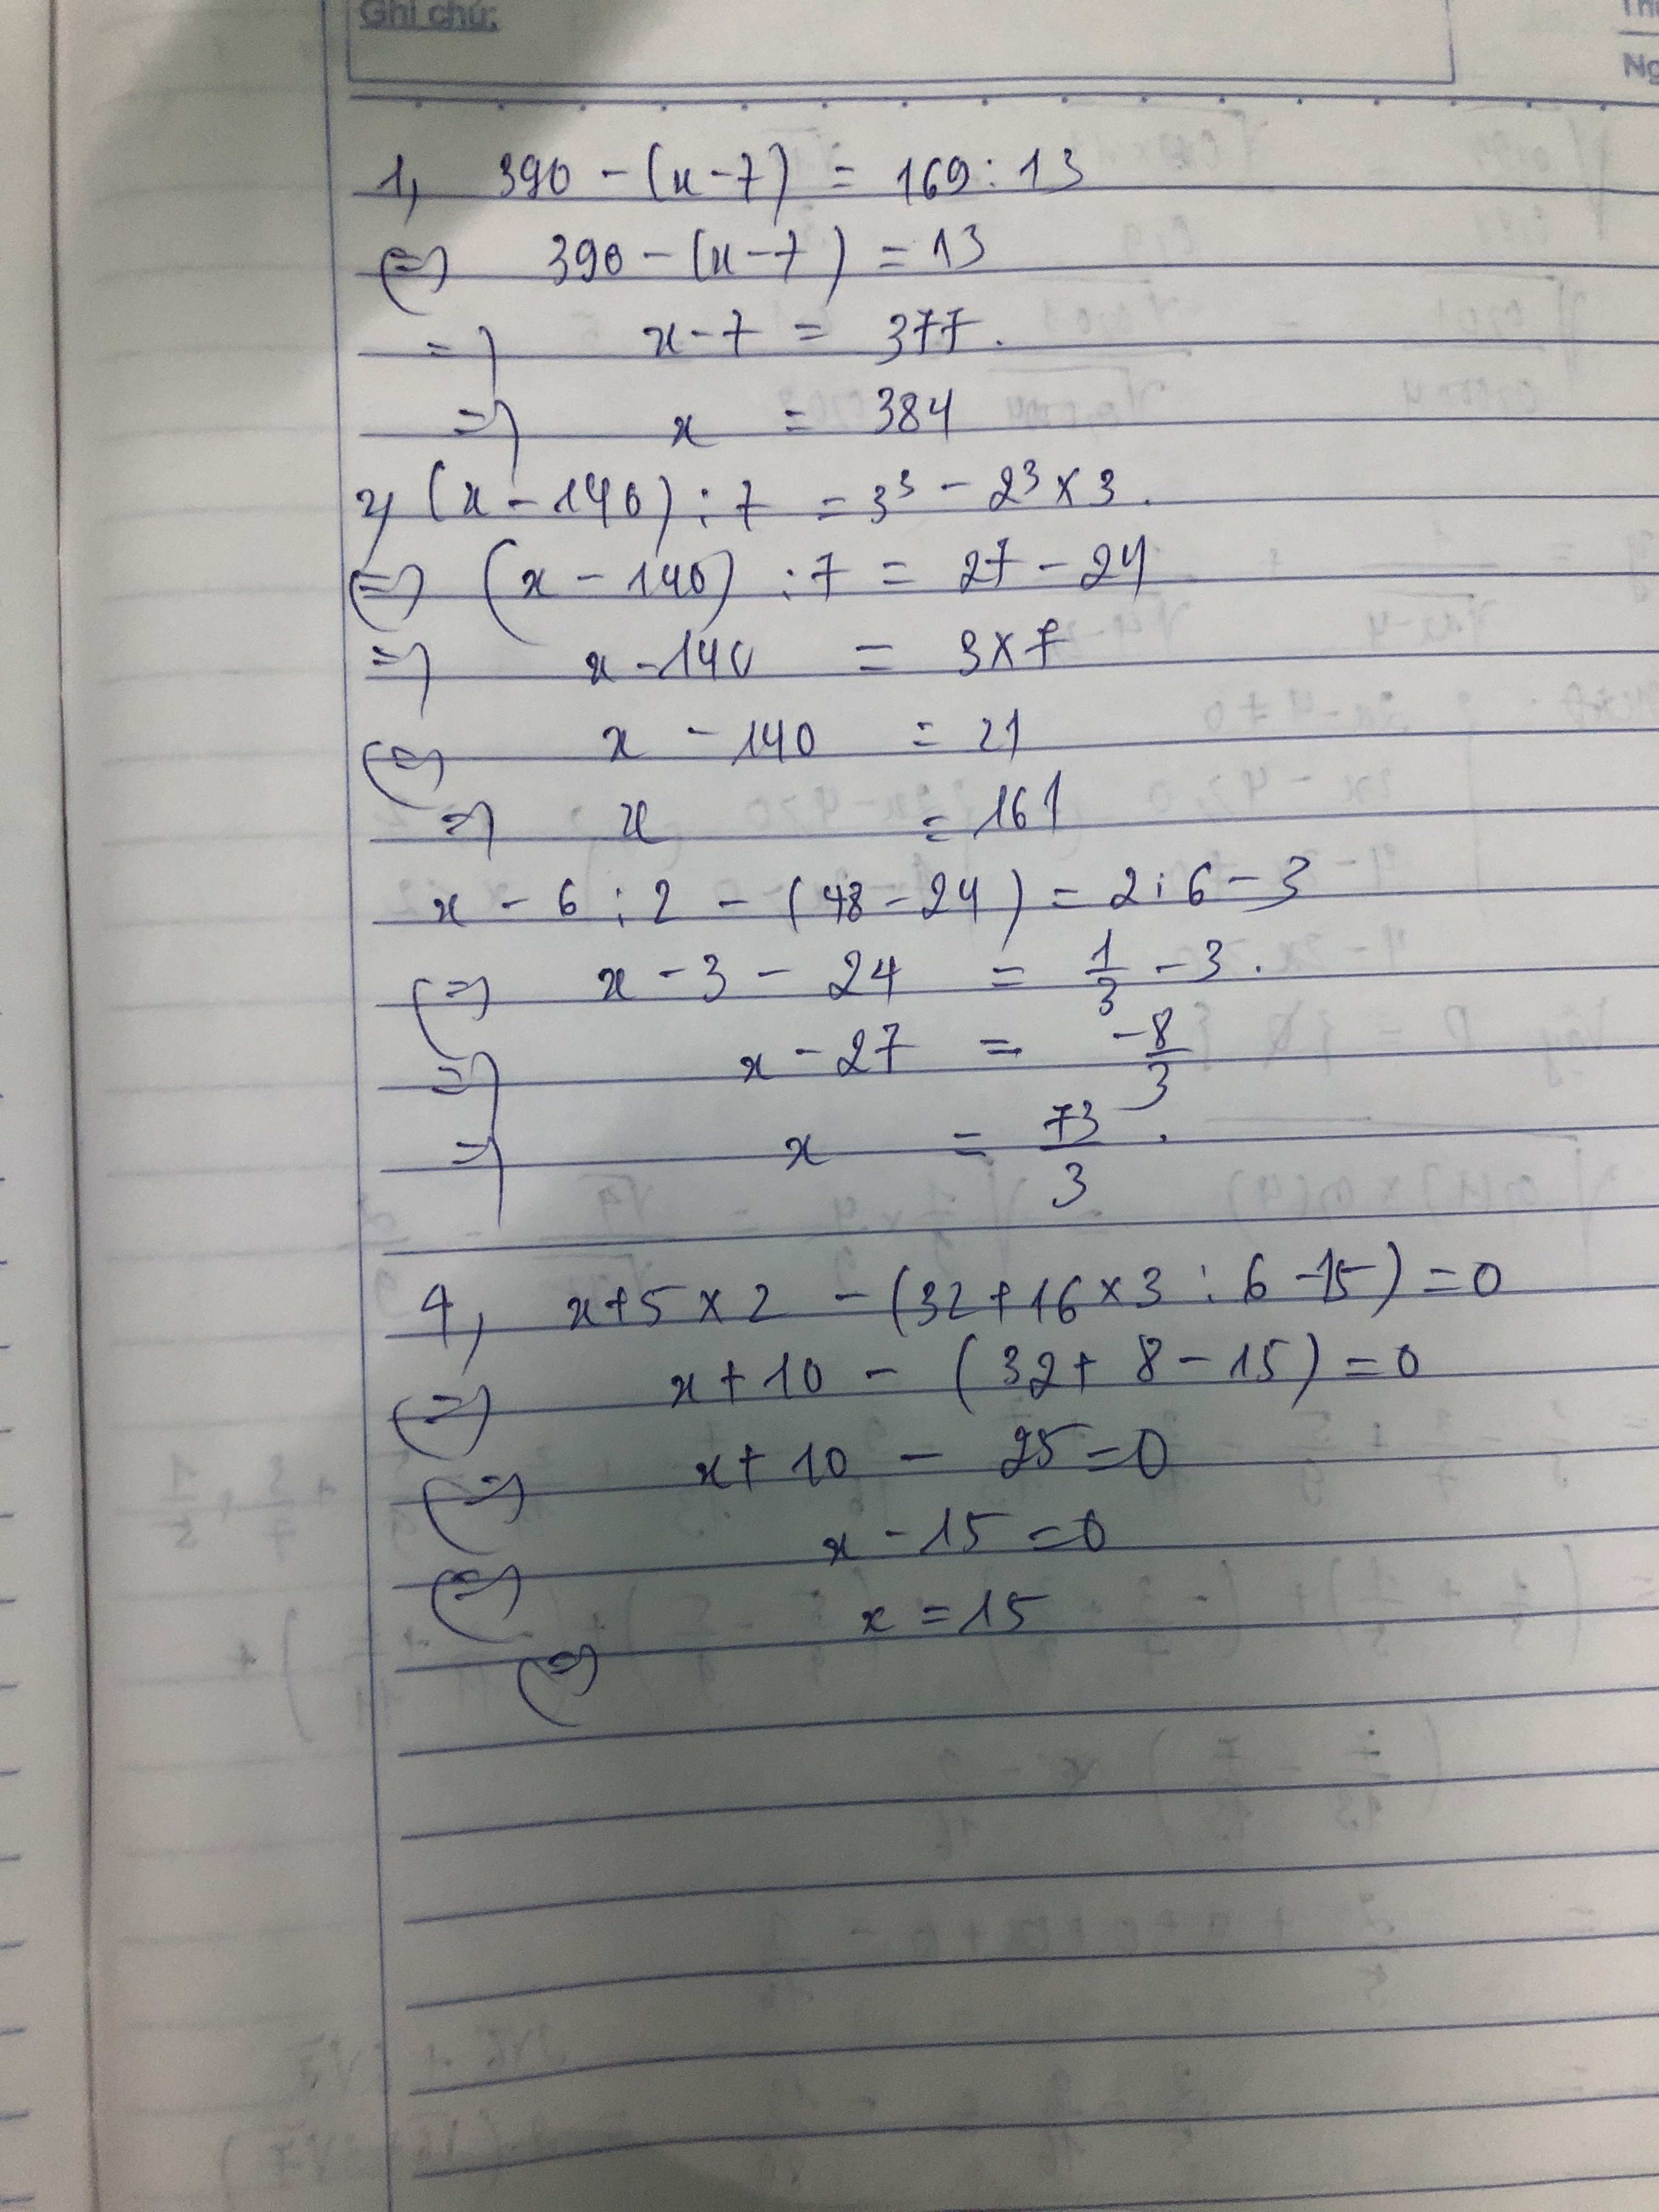 Ghi chú:
Ng
1, 390 - (x-7) = 169 : 13
(=) 390 - (x-7) = 13
=) x-7 = 377.
=) x = 384
2, (x - 140) : 7 = 3³ - 2³ x 3.
(=) (x - 140) : 7 = 27 - 24
=) x - 140 = 3 x 7
(=) x - 140 = 21
=) x = 161
x - 6 : 2 - (48 - 24) = 2 : 6 - 3
(=) x - 3 - 24 = 1/3 - 3.
=) x - 27 = -8/3
=) x = 73/3.
4, x + 5 x 2 - (32 + 16 x 3 : 6 - 15) = 0
(=) x + 10 - (32 + 8 - 15) = 0
(=) x + 10 - 25 = 0
(=) x - 15 = 0
(=) x = 15